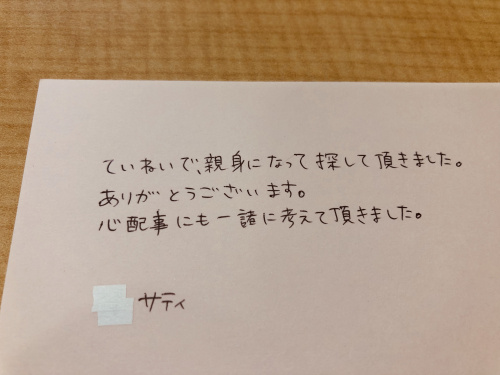 ていねいで、親身になって探して頂きました。
ありがとうございます。
心配事にも一諸に考えて頂きました。
サティ